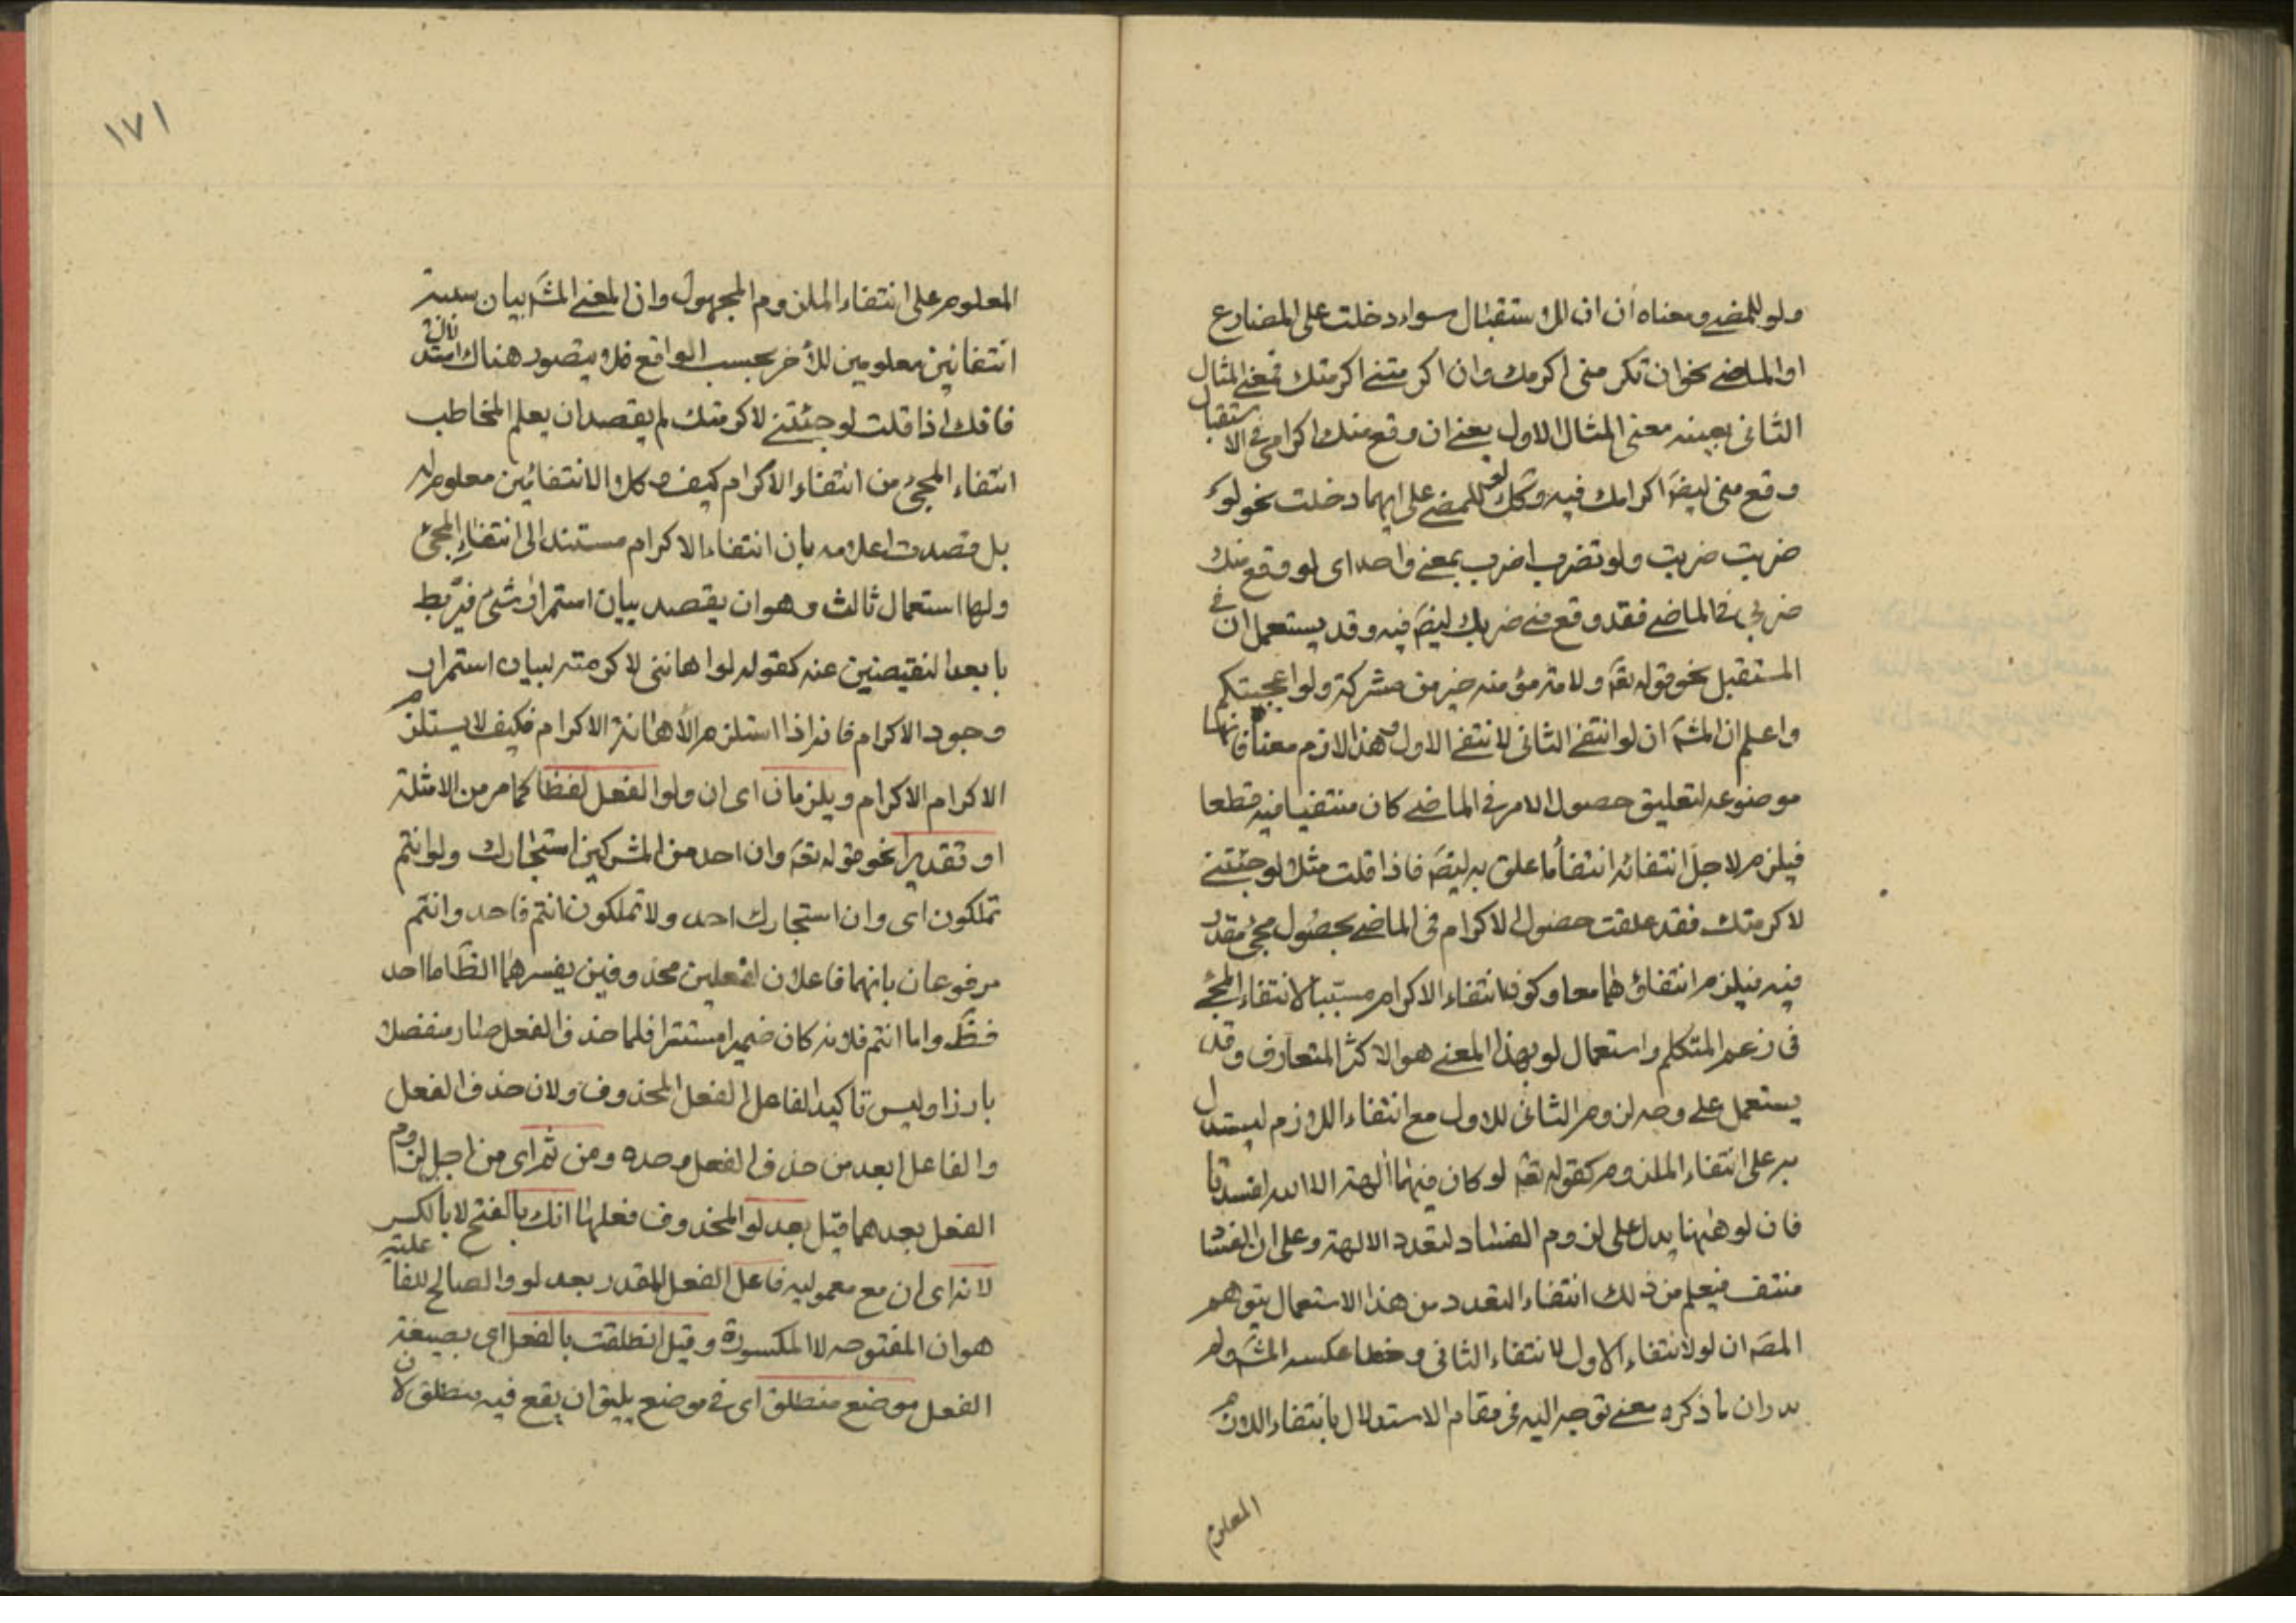 ولو للمضے ومعناه ان ان للاستقبال سواء دخلت على المضارع
او الماضے نحو ان تكرمنى اكرمك وان اكرمتنے اكرمتك فمعنے المثال
الثانى بعينه معنى المثال الاول يعنے ان وقع منك اكرامى فى الاستقبال
وقع منى ايضَ اكرامك فيه وكك لو للمضے على ايهما دخلت نحو لو
ضربت ضربت ولو تضرب اضرب بمعنے واحد اى لو وقع منك
ضربى فى الماضے فقد وقع منے ضربك ايضَ فيه وقد يستعمل ان فى
المستقبل نحو قوله تعَ ولامة مؤمنه خير من مشركة ولو اعجبتكم
واعلم ان المشهَ ان لو انتفے الثانى لانتفے الاول وهذا لازم معناه فانها
موضوعه لتعليق حصول الامر فى الماضے كان منتفيا فيه قطعا
فيلزم لاجل انتفائه انتفاء ما علق به ايضَ فاذا قلت مثلا لو جئتنے
لاكرمتك فقد علقت حصول الاكرام فى الماضے بحصول مجئ مقدر
فيه فيلزم انتفاؤهما معا وكون انتفاء الاكرام مسببا لانتفاء المجئے
فى زعم المتكلم واستعمال لو بهذا المعنے هو الاكثر المتعارف وقد
يستعمل علے وجه لزوم الثانى للاول مع انتفاء اللازم ليستدل
به على انتفاء الملزوم كقوله تعَ لو كان فيهما آلهة الا الله لفسدتا
فان لو ههنا يدل على لزوم الفساد لتعدد الالهة وعلى ان الفساد
منتف فيعلم من ذلك انتفاء التعدد من هذا الاستعمال يتوهم
المصَ ان لو لانتفاء الاول لانتفاء الثانى وخطا عكسه المشهَ ولم
يدر ان ما ذكره معنے توجه اليه فى مقام الاستدلال بانتفاء اللازم
المعلوم
١٧١
المعلوم على انتفاء الملزوم المجهول وان المعنے المشهَ بيان سببية
انتفائين معلومين للأخر بحسب الواقع فلا يتصور هناك استدلال
فانك اذا قلت لو جئتنے لاكرمتك لم يقصد ان يعلم المخاطب
انتفاء المجئ من انتفاء الاكرام كيف وكلا الانتفائين معلوم له
بل قصدت اعلامه بان انتفاء الاكرام مستند الى انتفاء المجئ
ولها استعمال ثالث وهو ان يقصد بيان استمرار شئ فيربط
بابعد النقيضين عنه كقوله لو اهاننى لاكرمته لبيان استمرار
وجود الاكرام فانه اذا استلزم الاهانة الاكرام فكيف لا يستلزم
الاكرام الاكرام ويلزمان اى ان ولو الفعل لفظا كما مر من الامثلة
او تقديرا نحو قوله تعَ وان احد من المشركين استجارك ولو انتم
تملكون اى وان استجارك احد ولا تملكون انتم فاحد وانتم
مرفوعان بانهما فاعلان لفعلين محذوفين يفسرهما الظَ اما احد
فظَ واما انتم فلانه كان ضميرا مستترا فلما حذف الفعل صار منفصلا
بارزا وليس تاكيدا لفاعل الفعل المحذوف ولان حذف الفعل
والفاعل ابعد من حذف الفعل وحده ومن ثم اى من اجل لزوم
الفعل بعدهما قيل بعد لو المحذوف فعلها انك بالفتح لا بالكسر
لانه اى ان مع معموليه فاعل الفعل المقدر بعد لو والصالح للفاعلية
هو ان المفتوحه لا المكسورة وقيل انطلقت بالفعل اى بصيغة
الفعل موضع منطلق اى فى موضع يليق ان يقع فيه منطلق لان